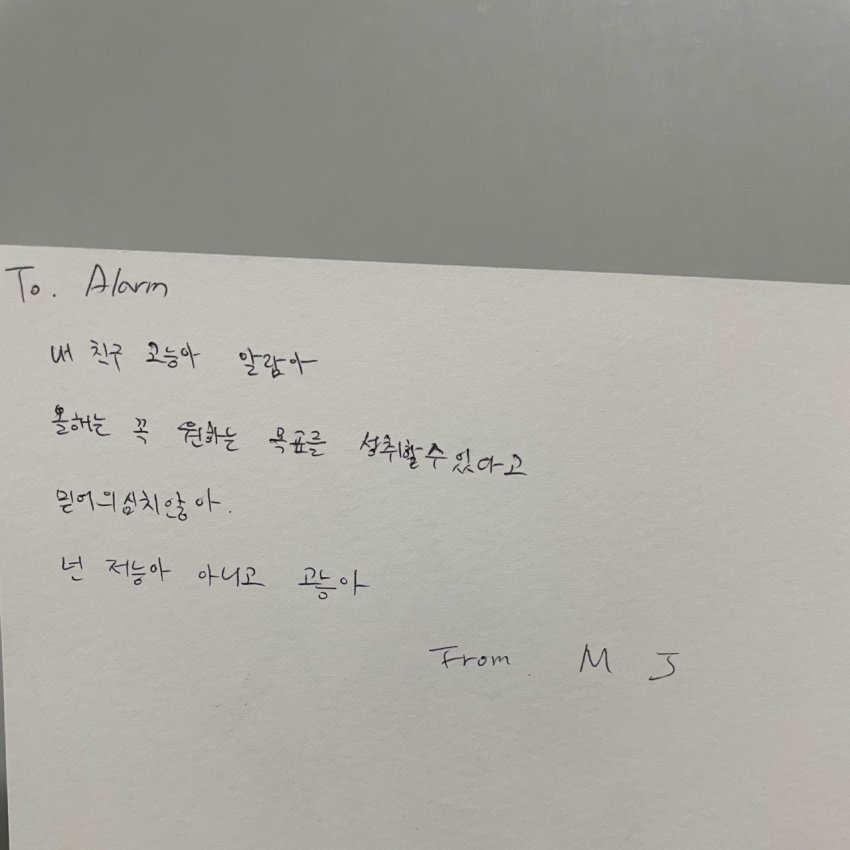 To. Alarm
내 친구 고능아 알람아
올해는 꼭 원하는 목표를 성취할수있다고
믿어의심치않아.
넌 저능아 아니고 고능아
From. M J